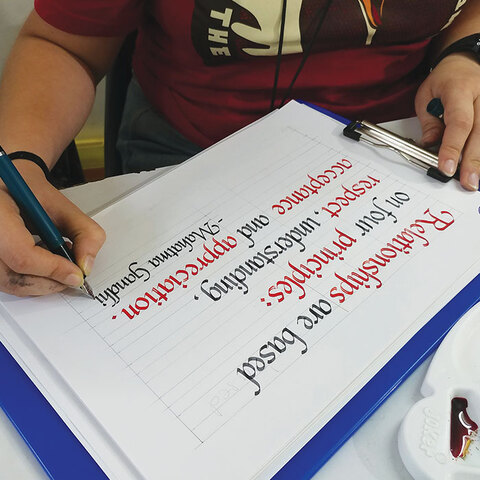 Relationships are based
on four principles:
respect, understanding,
acceptance and appreciation.
-Mahatma Gandhi
THE